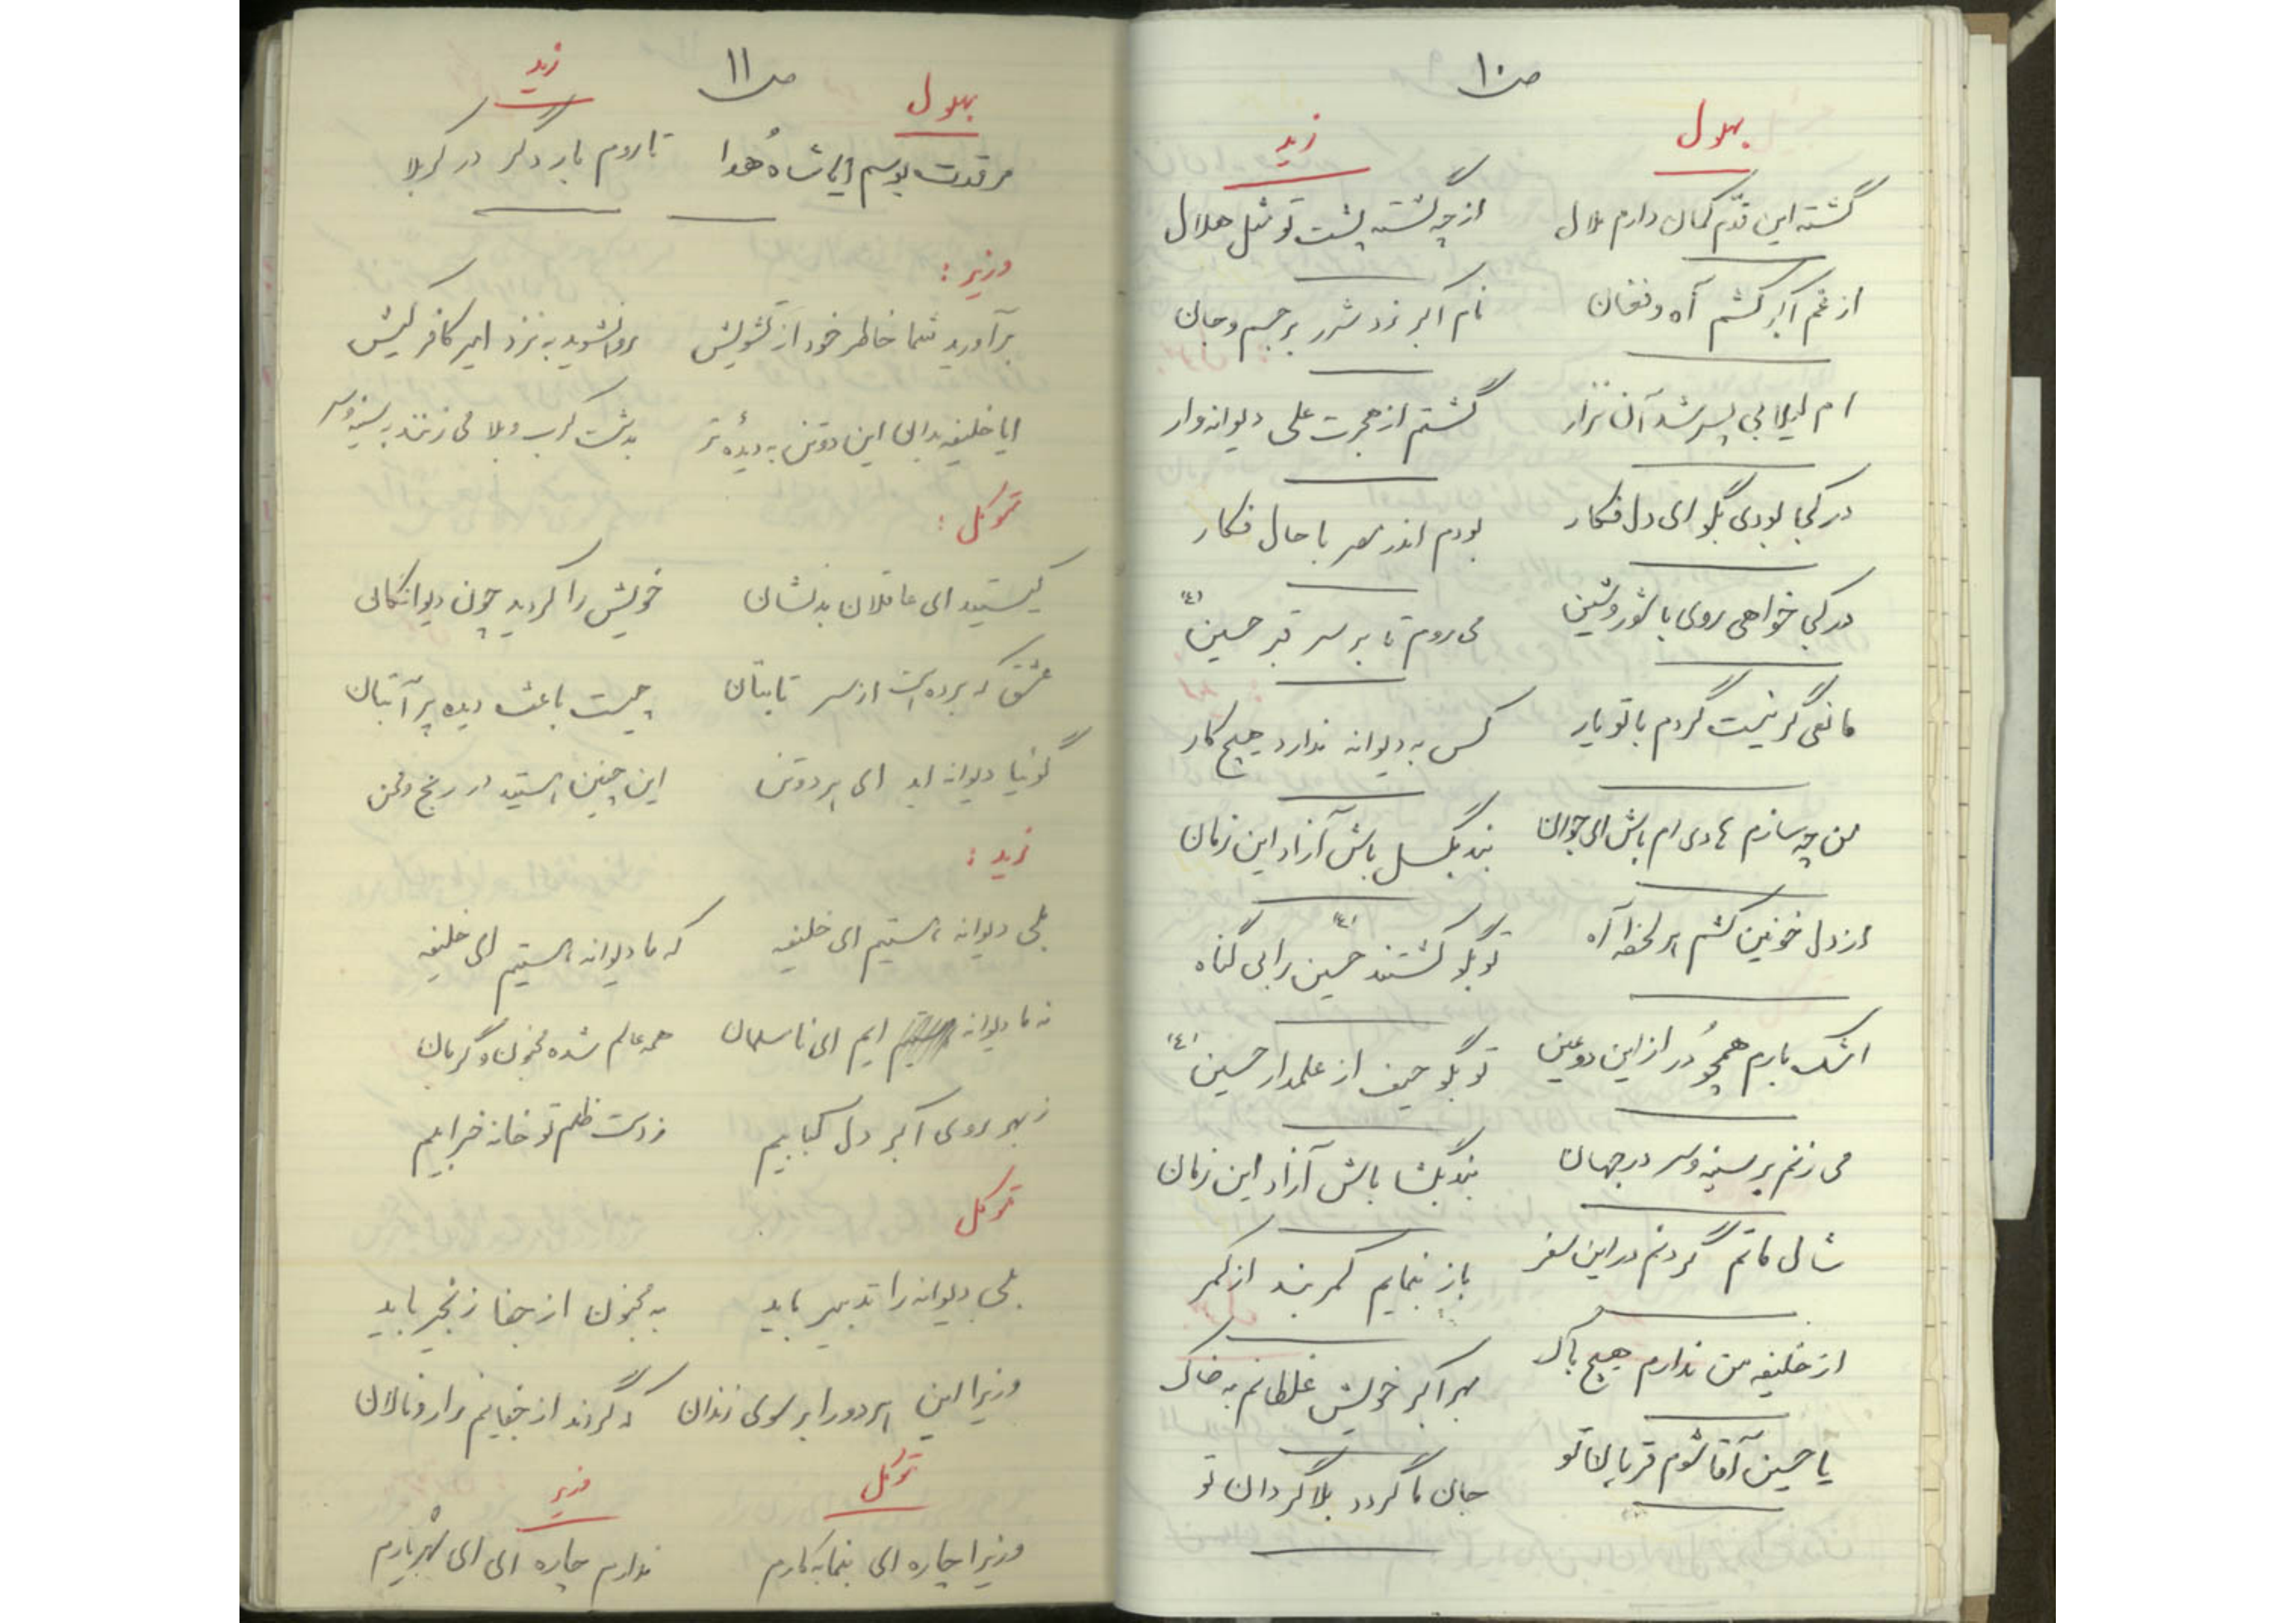 ص ۱۰
بهلول
زید
گشته این قدّم کمان دارم ملال
از چه گشته پشت تو مثل هلال
از غم اکبر کشم آه و فغان
نام اکبر زد شرر بر جسم و جان
ام لیلا بی پسر شد آن نزار
گشتم از هجرت علی دیوانه وار
در کجا بودی بگو ای دل فکار
بودم اندر مصر با حال فکار
در کجا خواهی روی با شور و شین
می روم تا بر سر قبر حسین (ع)
مانعی گر نیست گردم با تو یار
کس به دیوانه ندارد هیچ کار
من چه سازم هادی ام باش ای جوان
بند بگسل باش آزاد این زمان
از دل خونین کشم هر لحظه آه
تو بگو کشتند حسین (ع) را بی گناه
اشک بارم همچو دُر از این دو عین
تو بگو حیف از علمدار حسین (ع)
می زنم بر سینه و سر در جهان
بند بگشا باش آزاد این زمان
شال ماتم گردنم در این سفر
باز بنمایم کمربند از کمر
از خلیفه من ندارم هیچ باک
بهر اکبر خویش غلطانم به خاک
یا حسین آقا شوم قربان تو
جان ما گردد بلا گردان تو
ص ۱۱
بهلول
زید
مرقدت بوسم ایا شاه هُدا
تا روم بار دگر در کربلا
وزیر :
برآورید شما خاطر خود از تشویش
روان شوید به نزد امیر کافر کیش
ایا خلیفه بدان این دو تن به دیدهٔ تر
به دشت کرب و بلا می زنند به سینه و سر
توکل :
کیستید ای عاقلان بد نشان
خویش را کردید چون دیوانگان
عشق که برده است از سر تابتان
چیست باعث دیده پر آبتان
گوئیا دیوانه اید ای هر دو تن
این چنین هستید در رنج و محن
زید :
بلی دیوانه هستیم ای خلیفه
که ما دیوانه هستیم ای خلیفه
نه ما دیوانه ایم ای نامسلمان
همه عالم شده مجنون و گریان
ز بهر روی اکبر دل کبابیم
ز دست ظلم تو خانه خرابیم
توکل
بلی دیوانه را تدبیر باید
به مجنون از جفا زنجیر باید
وزیرا این هر دو را بر سوی زندان
که گردند از جفایم زار و نالان
توکل
وزیر
وزیرا چاره ای بنما به کارم
ندارم چاره ای ای شهریارم